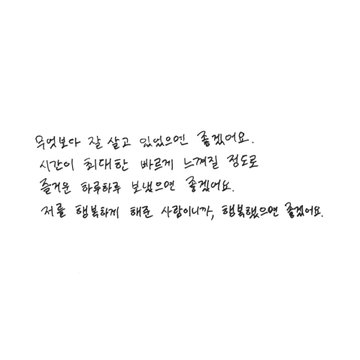 무엇보다 잘 살고 있었으면 좋겠어요.
시간이 최대한 빠르게 느껴질 정도로
즐거운 하루하루 보냈으면 좋겠어요.
저를 행복하게 해준 사람이니까, 행복했으면 좋겠어요.